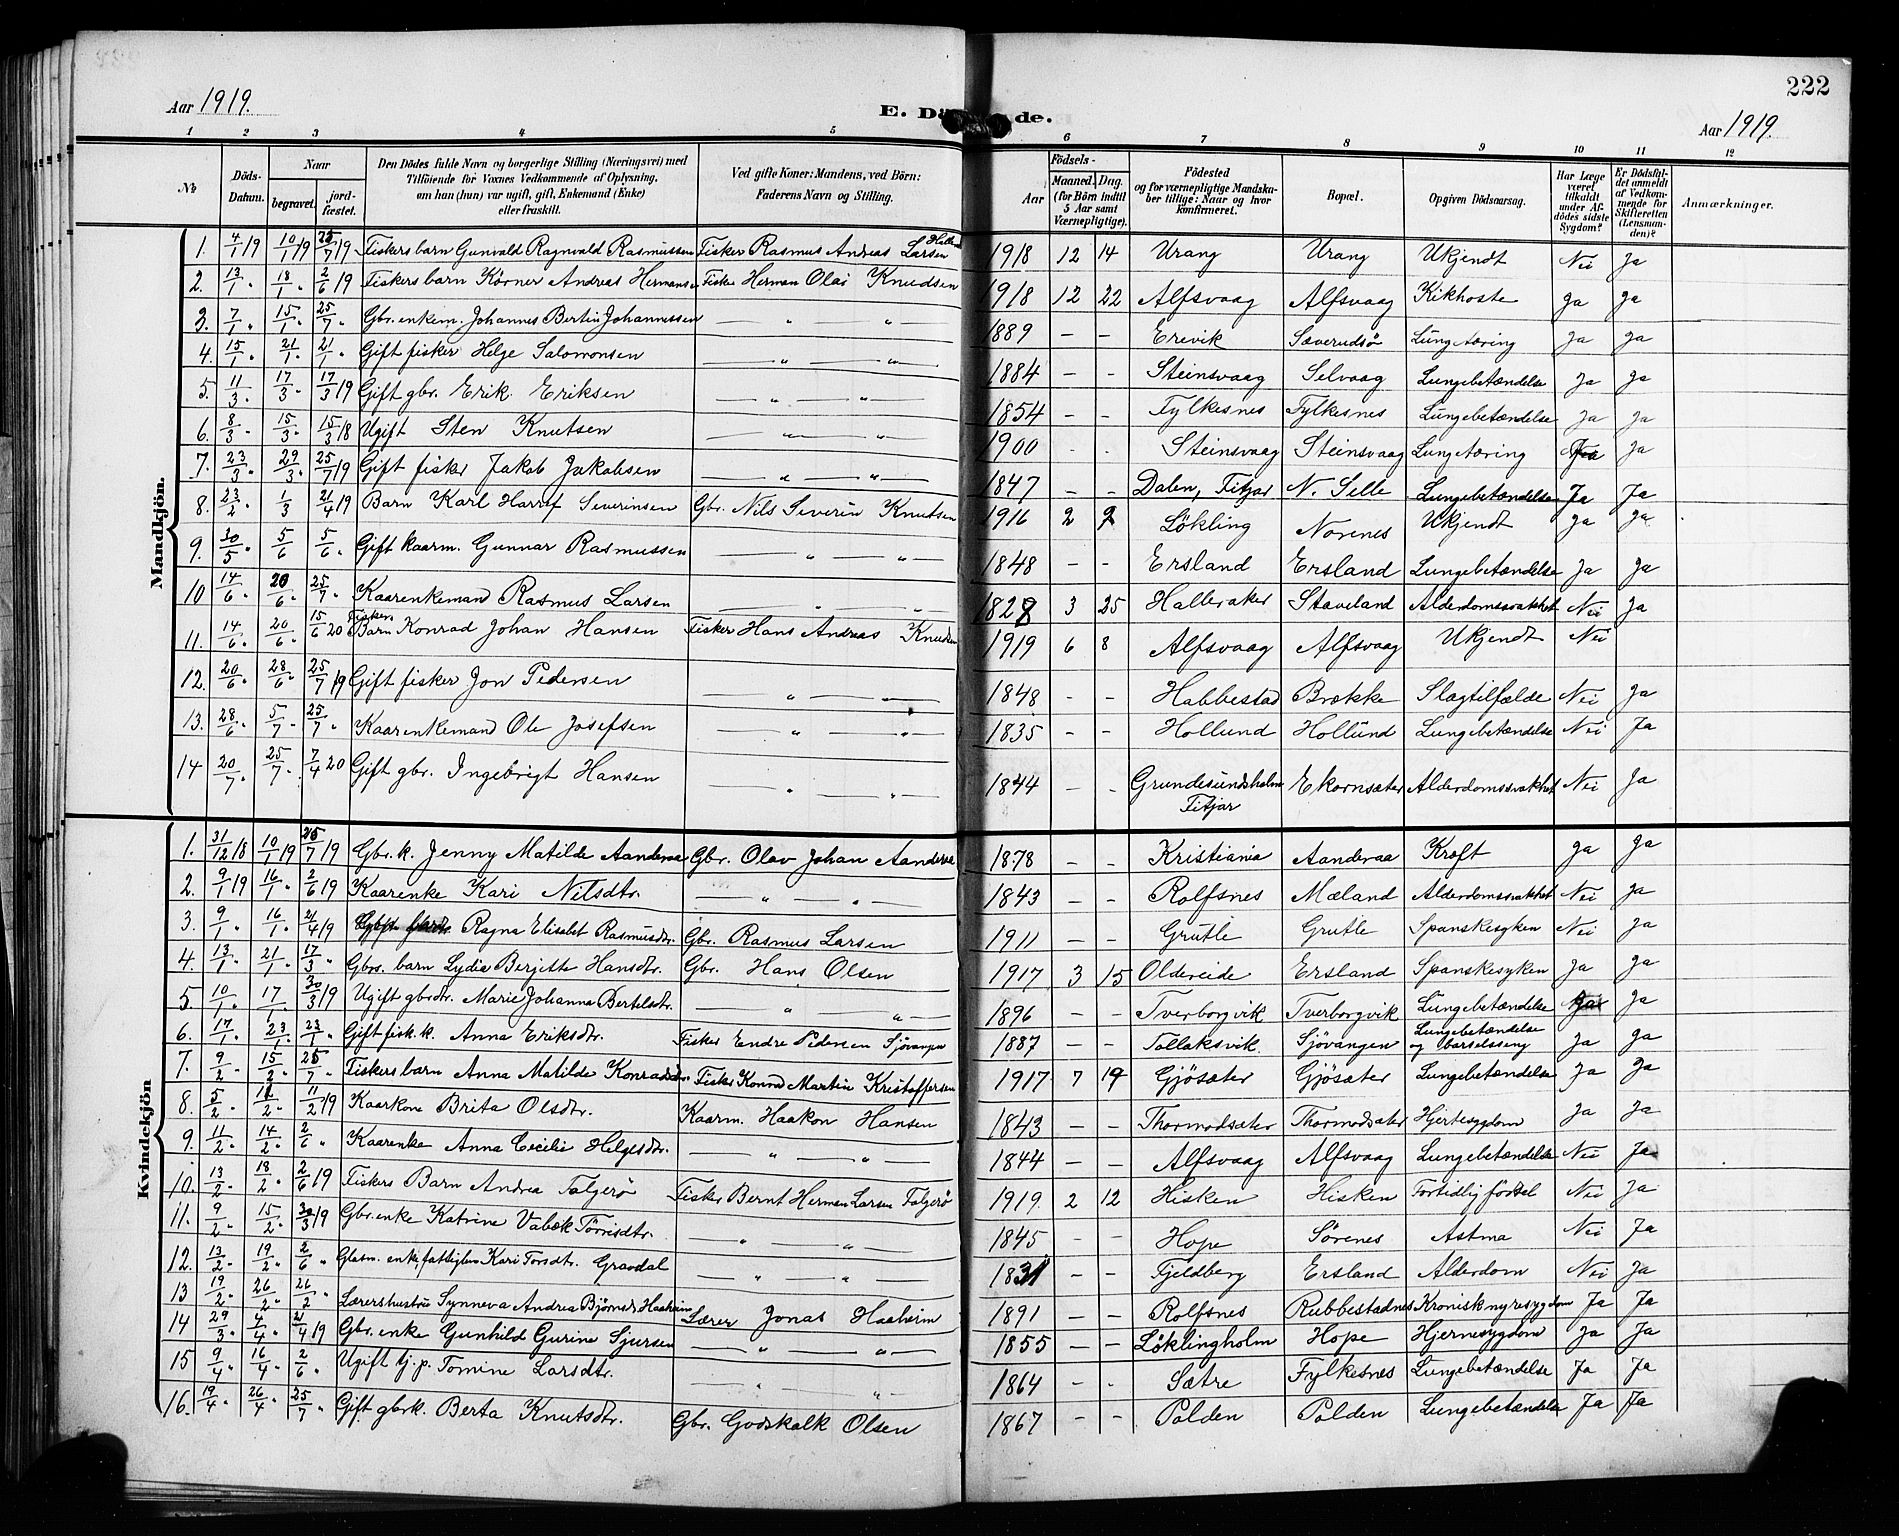 222
Aar 1919. E. Dö de. Aar 1919.
1 2 3 4 5 6 7 8 9 10 11 12
No Döds-Datum. Naar begravet. jord-fæstet. Den Dödes fulde Navn og borgerlige Stilling (Næringsvei) med Tilföiende for Voxnes Vedkommende af Oplysning, om han (hun) var ugift, gift, Enkemand (Enke) eller fraskilt. Ved gifte Koner: Mandens, ved Börn: Faderens Navn og Stilling. Födsels- Aar Maaned. Dag. (for Börn indtil 5 Aar samt Værnepligtige). Födested og for værnepligtige Mandskaber tillige: Naar og hvor konfirmeret. Bopæl. Opgiven Dödsaarsag. Har Læge været tilkaldt under Afdödes sidste Sygdom? Er Dödsfaldet anmeldt af Vedkommende for Skifteretten (Lensmanden)? Anmærkninger.
Mandkjön.
1. 4/1 19 10/1 19 25/7 19 Fiskers barn Gunvald Ragnvald Rasmussen Fisker Rasmus Andreas Larsen 1918 12 14 Urang Urang Ukjendt Nei Ja
2. 13/1 " 18/1 " 2/6 19 Fiskers barn Körner Andreas Hermansen Fisker Herman Olai Knudsen 1918 12 22 Alfsvaag Alfsvaag Kikhoste Ja Ja
3. 7/1 " 15/1 " 25/7 " Gbr. enkem. Johannes Bertin Johannessen — " — " — 1889 – – Erevik Sæverudsö Lungetæring Ja Ja
4. 15/1 " 21/1 " 21/1 " Gift fisker Helge Salomonsen — " — " — 1884 – – Steinsvaag Selvaag Lungebetændelse Ja Ja
5. 11/3 " 17/3 " 17/3 19 Gift gbr. Erik Eriksen — " — " — 1854 – – Fylkesnes Fylkesnes Lungebetændelse Ja Ja
6. 8/3 " 15/3 " 15/3 18 Ugift Sten Knutsen — " — " — 1900 - - Steinsvaag Steinsvaag Lungetæring Ja Ja
7. 23/3 " 29/3 " 25/7 19 Gift fisker Jakob Jakobsen — " — " — 1847 – – Dalen, Fitjar N. Selle Lungebetændelse Ja Ja
8. 23/2 " 1/3 21/4 19 Barn Karl Harrif Severinsen Gbr. Nils Severin Knutsen 1916 2 Lökling Norenes Ukjendt Ja Ja
9. 30/5 " 5/6 5/6 " Gift kaarm. Gunnar Rasmussen — " — " — 1848 – – Ersland Ersland Lungebetændelse Ja Ja
10 14/6 " 20/6 " 25/7 " Kaarenkemand Rasmus Larsen — " — " — 1828 3 25 Halleraker Staveland Alderdomssvakhet Nei Ja
11. 14/6 " 20/6 " 15/6 20 Fiskers Barn Konrad Johan Hansen Fisker Hans Andreas Knudsen 1919 6 8 Alfsvaag Alfsvaag Ukjendt Nei
12. 20/6 " 28/6 " 25/7 19 Gift fisker Jon Pedersen — " — " — 1848 – – Habbestad Brække Slagtilfælde Nei Ja
13. 28/6 " 5/7 " 25/7 " Kaarenkemand Ole Josefsen — " — " — 1835 – – Hollund Hollund Lungebetændelse Nei Ja
14 20/7 " 25/7 " 7/4 20 Gift gbr. Ingebrigt Hansen — " — " — 1844 – – Grundesundsholm Fitjar Ekornsæter Alderdomssvakhet Nei Ja
Kvindekjön
1. 31/12 18 10/1 19 25/7 19 Gbr. k. Jenny Matilde Aanderaa Gbr. Olav Johan Aanderaa 1878 – – Kristiania Aanderaa Kræft Ja Ja
2. 9/1 19 16/1 " 2/6 19 Kaarenke Kari Nilsdtr. — " — " — 1843 – – Rolfsnes Mæland Alderdomssvakhet Nei Ja
3. 9/1 " 16/1 " 21/4 19 Ragna Elisabet Rasmusdtr. Gbr. Rasmus Larsen 1911 – – Grutle Grutle Spanskesyken Nei Ja
4. 13/1 " 21/1 " 17/3 " Gbrs. barn Lydia Berjitte Hansdtr. Gbr. Hans Olsen 1917 3 15 Oldereide Ersland Spanskesyken Ja Ja
5. 10/1 " 17/1 " 30/3 19 Ugift gbrdtr. Marie Johanna Bertelsdtr. — " — " — 1896 – – Tverborgvik Tverborgvik Lungebetændelse Ja
6. 17/1 " 23/1 " 23/1 " Gift fisk. k. Anna Eriksdtr. Fisker Endre Pedersen Sjövangen 1887 – – Tollaksvik Sjövangen Lungebetændelse og barselsseng Ja Ja
7. 9/2 " 15/2 " 25/7 " Fiskers barn Anna Matilde Konradsdtr. Fisker Konrad Martin Kristoffersen 1917 7 19 Gjösæter Gjösæter Lungebetændelse Ja Ja
8. 5/2 " 11/2 " 11/2 19 Kaarkone Brita Olsdtr. Kaarm. Haakon Hansen 1843 – – Thormodsæter Thormodsæter Hjertesygdom Ja Ja
9. 11/2 " 14/2 " 2/6 " Kaarenke Anna Cecilie Helgesdtr. — " — " — 1844 – – Alfsvaag Alfsvaag Lungebetændelse Nei Ja
10. 13/2 " 18/2 " 2/6 19 Fiskers Barn Andrea Folgerö Fisker Bernt Herman Larsen Folgerö 1919. 2 12 Hisken Hisken Fortidlig fødsel Nei Ja
11. 9/2 " 15/2 " 30/3 19 Gbr. enke Katrine Vabek Törrisdtr. — " — " — 1845 – – Hope Sörenes Astma Nei Ja
12. 13/2 " 19/2 " 2/6 " enke, fattiglem Kari Torsdtr. Gravdal — " — " — 1831 – – Fjeldberg Ersland Alderdom Nei Ja
13 19/2 " 26/2 " 26/2 " Lærershustru Synneva Andrea Björnsd. Haaheim Lærer Jonas Haaheim 1891 – – Rolfsnes Rubbestadnes Kronisk nyresygdom Ja Ja
14 29/3 " 4/4 " 21/4 19 Gbr. enke Gunhild Gurine Sjursen — " — " — 1855 – – Löklingholm Hope Hjernesygdom Ja Ja
15 9/4 " 16/4 " 2/6 " Ugift tj. p. Tomine Larsdtr. — " — " — 1864 – - Sætre Fylkesnes Lungebetændelse Ja Ja
16. 19/4 " 26/4 " 25/7 " Gift gbrk. Berta Knutsdtr. Gbr. Godskalk Olsen 1867 – – Polden Polden Lungebetændelse Ja Ja